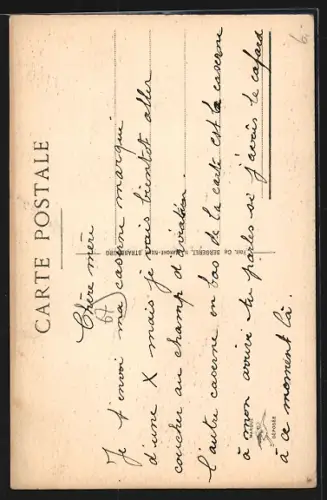 CARTE POSTALE
Chère mère
67
Je t'envoi ma caserne marqué
d'une X mais je vais bientôt aller
coucher au champ d'aviation.
l'autre caserne en bas de la carte est la caserne
à mon arrivé tu parles si j'avais le cafard
à ce moment là.
BERGERET STRASBOURG
DÉPOSÉE
6.